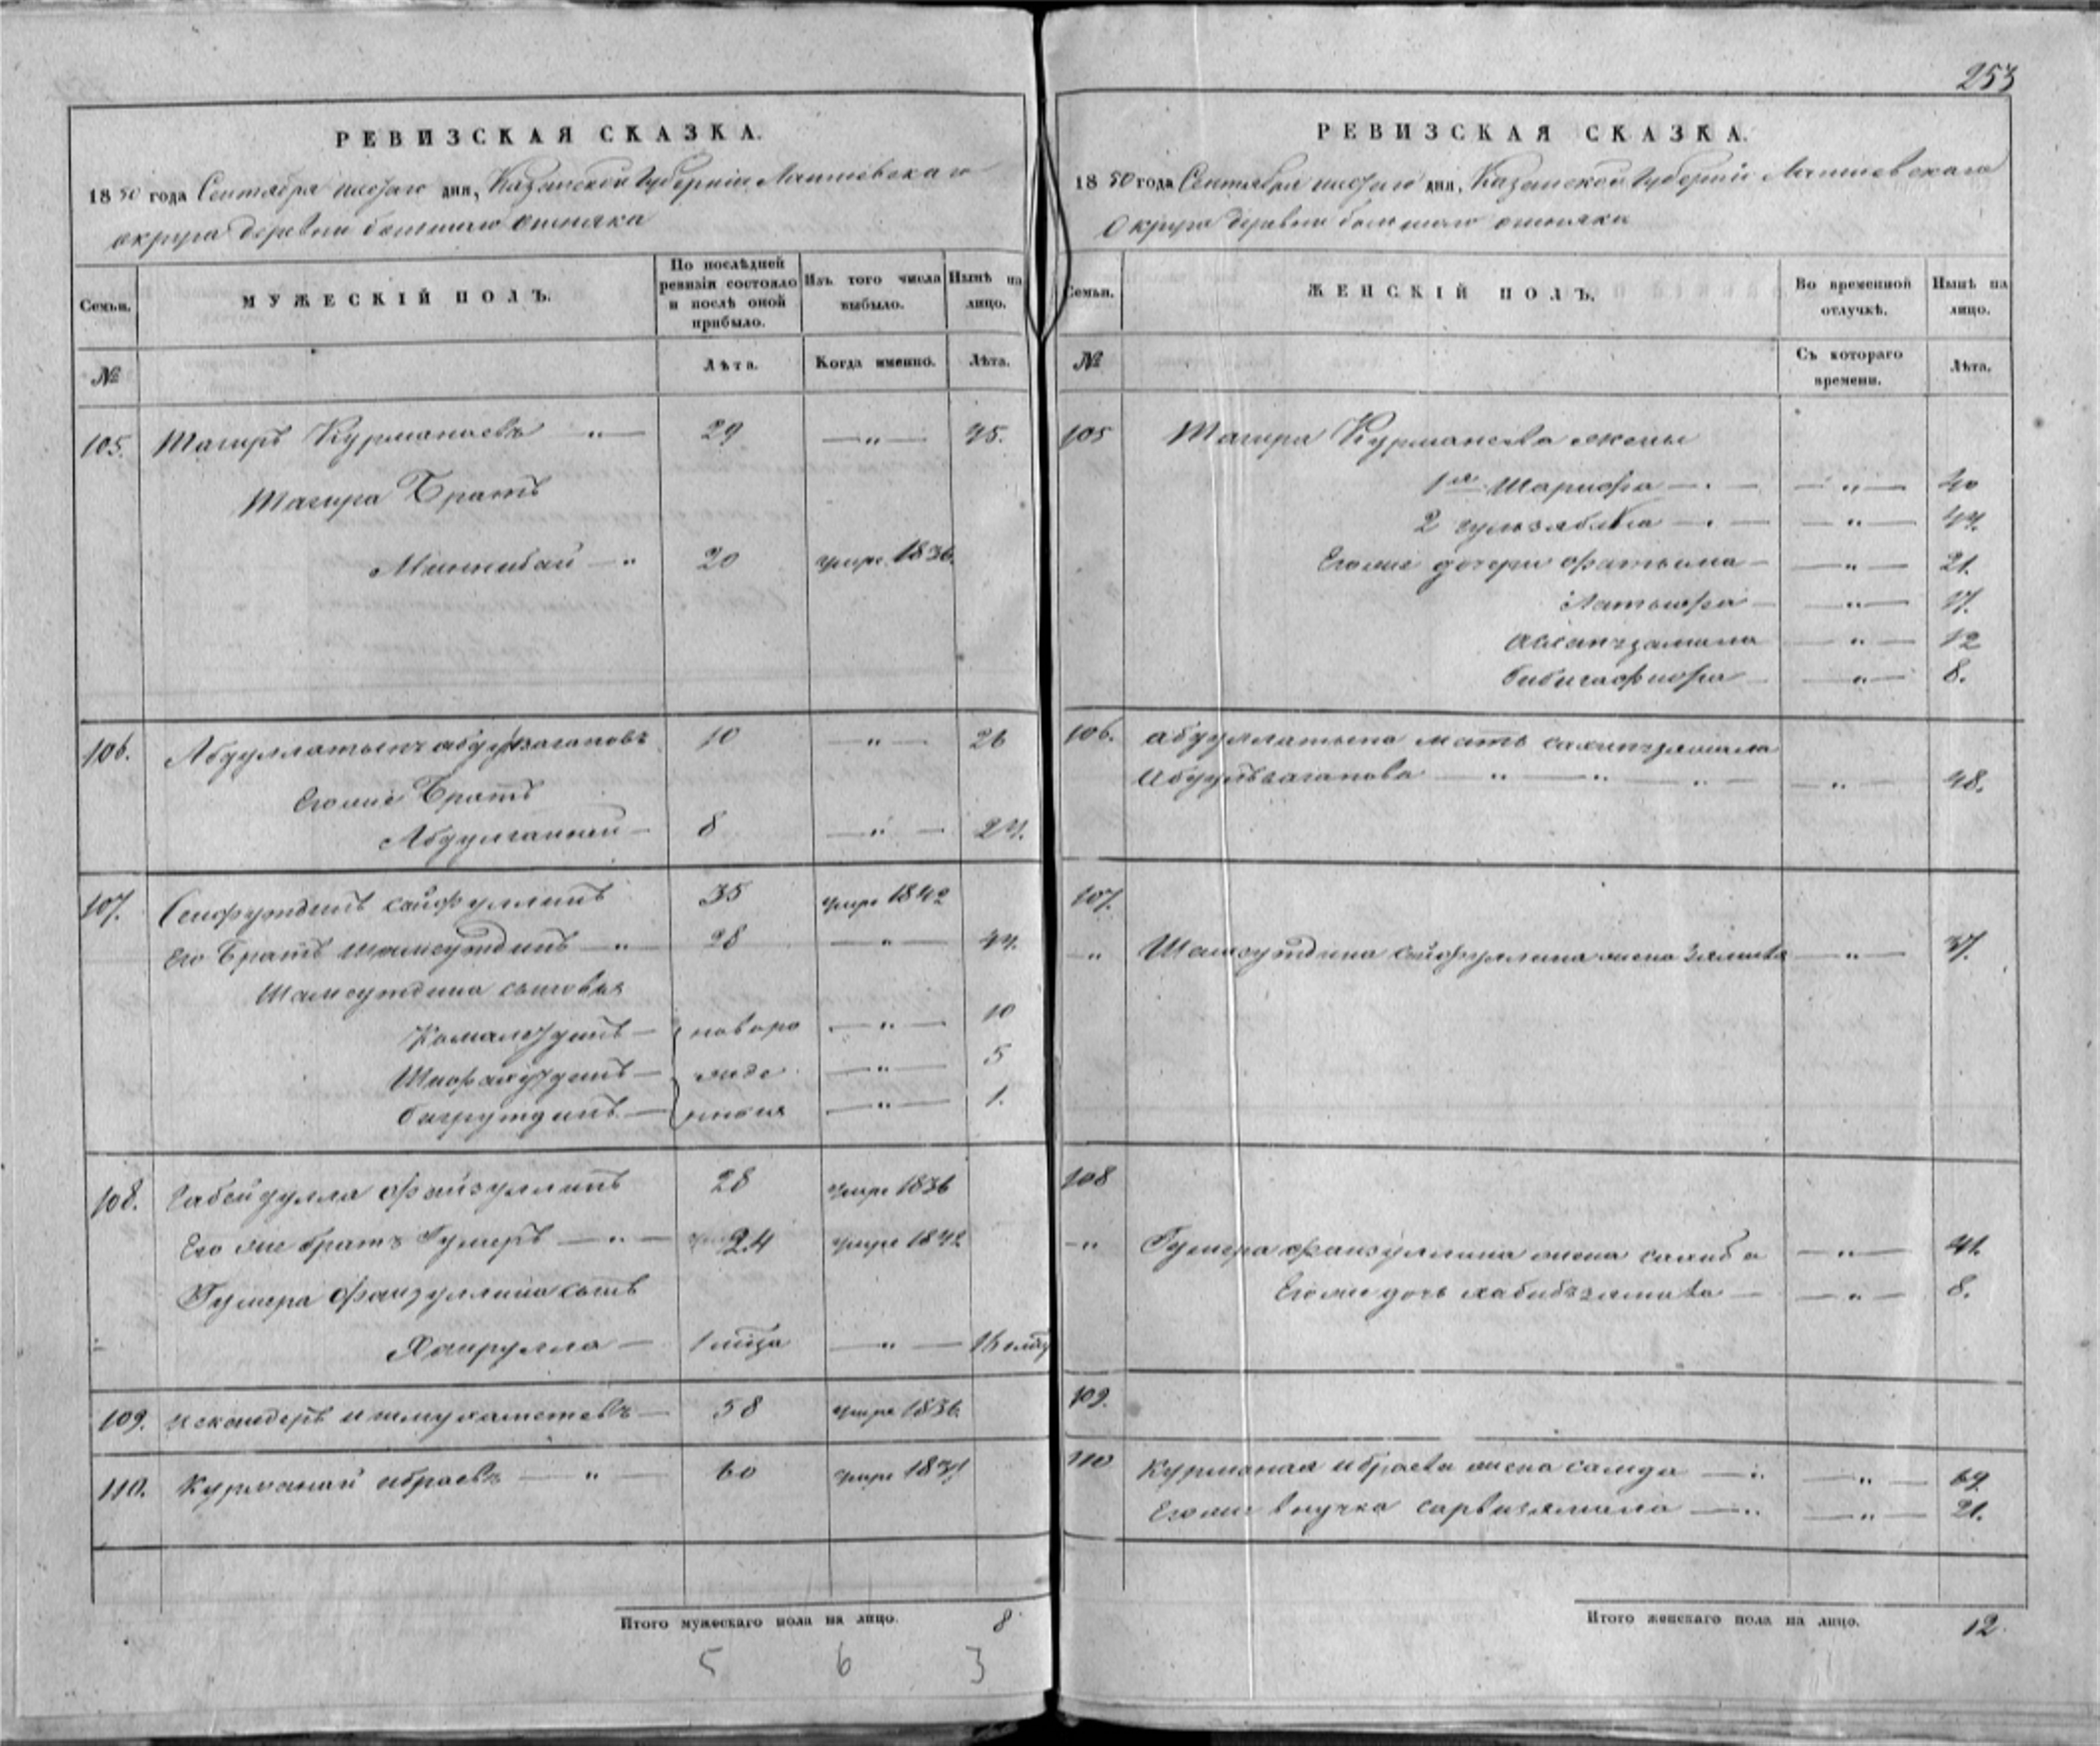 РЕВИЗСКАЯ СКАЗКА.
1850 года Сентября шестаго дня, Казанской Губернии Лаишевскаго
округа деревни большаго ошняка
Семьи.
МУЖЕСКІЙ ПОЛЪ.
По послѣдней ревизіи состояло и послѣ оной прибыло.
Изъ того числа выбыло.
Нынѣ на лицо.
№
Лѣта.
Когда именно.
Лѣта.
105. Тагиръ Курманаевъ — " — 29 — " — 45.
Тагира Братъ
Миннибай — " 20 умре 1836.
106. Абдуллатыпъ абдулвагаповъ 10 — " — 26
Егоже Братъ
Абдулганней — 8 — " — 24.
107. Сейфутдинъ сайфуллинъ 35 умре 1842
Его Братъ Шамсутдинъ — " 28 — " — 44.
Шамсутдина сыновья
Камалетдинъ — новоро — " — 10
— жде — " — 5
багрутдинъ — нныя — " — 1.
108. Габейдулла файзуллинъ 28 умре 1836
Его же братъ Гумеръ — " — 24 умре 1842
Гумера файзуллина сынъ
Хайрулла — 1 мѣца — " — 16
109. искандеръ ишмухаметевъ — 58 умре 1836.
110. Курманай ибраевъ — " — 60 умре 1837
Итого мужескаго пола на лицо. 8
5 6 3
253
РЕВИЗСКАЯ СКАЗКА.
1850 года Сентября шестаго дня, Казанской Губернии Лаишевскаго
Округа деревни большаго ошняка
Семьи.
ЖЕНСКІЙ ПОЛЪ.
Во временной отлучкѣ.
Нынѣ на лицо.
№
Съ котораго времени.
Лѣта.
105 Тагира Курманаева жены
1я Шарифа — . — — " — 40
2 — . — — " — 44.
Егоже дочери фатыма — — " — 21.
Латыфа — — " — 17.
— " — 12
бибигафифа — — " — 8.
106. абдуллатыпа мать сахипзямала
Абдулвагапова — " — " — " — — " — 48.
107.
" Шамсутдина сайфуллина жена — " — 37.
108
" Гумера файзуллина жена салиха — " — 41.
Егоже дочь хабибзямала — — " — 8.
109.
110 Курманая ибраева жена саида — " — " — 69.
Егоже внучка сарвизямала — " — " — 21.
Итого женскаго пола на лицо. 12.